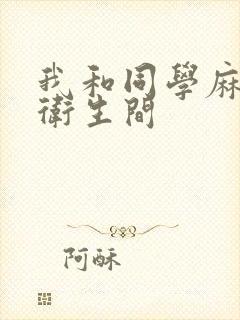 我和同學麻
衛生間
阿酥